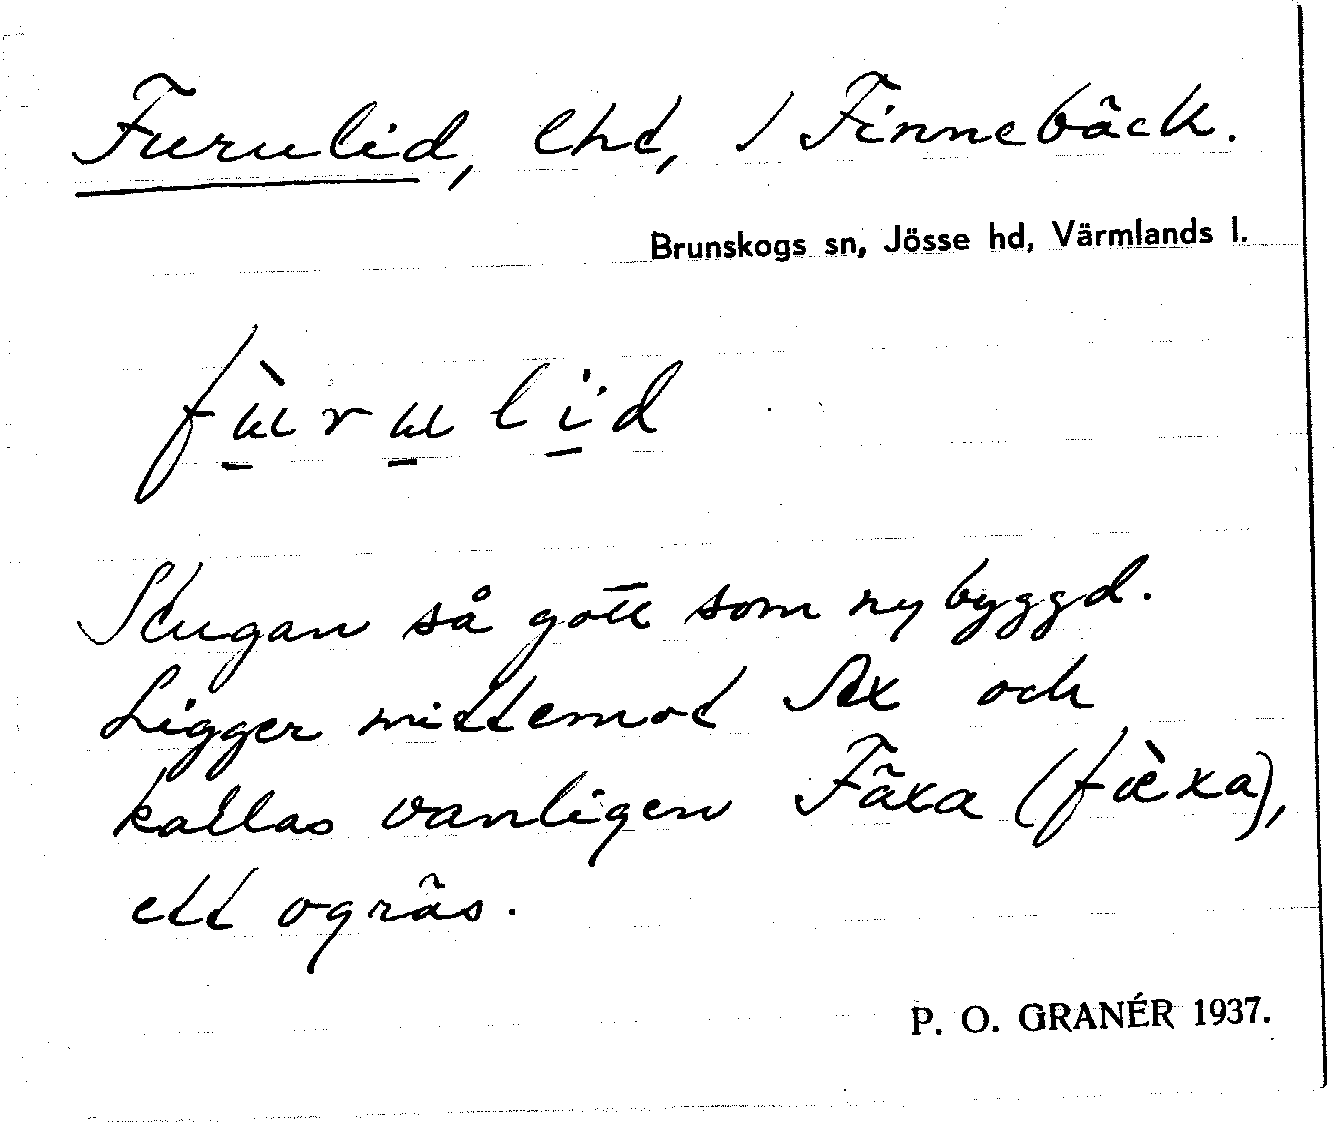 Furulid, lht, / Finnebäck.
Brunskogs sn, Jösse hd, Värmlands l.
fùrulid
Stugan så gott som ny byggd.
Ligger mittemot Ax och
kallas vanligen Fäxa (fæ̀xa),
ett ogräs.
P. O. GRANÉR 1937.